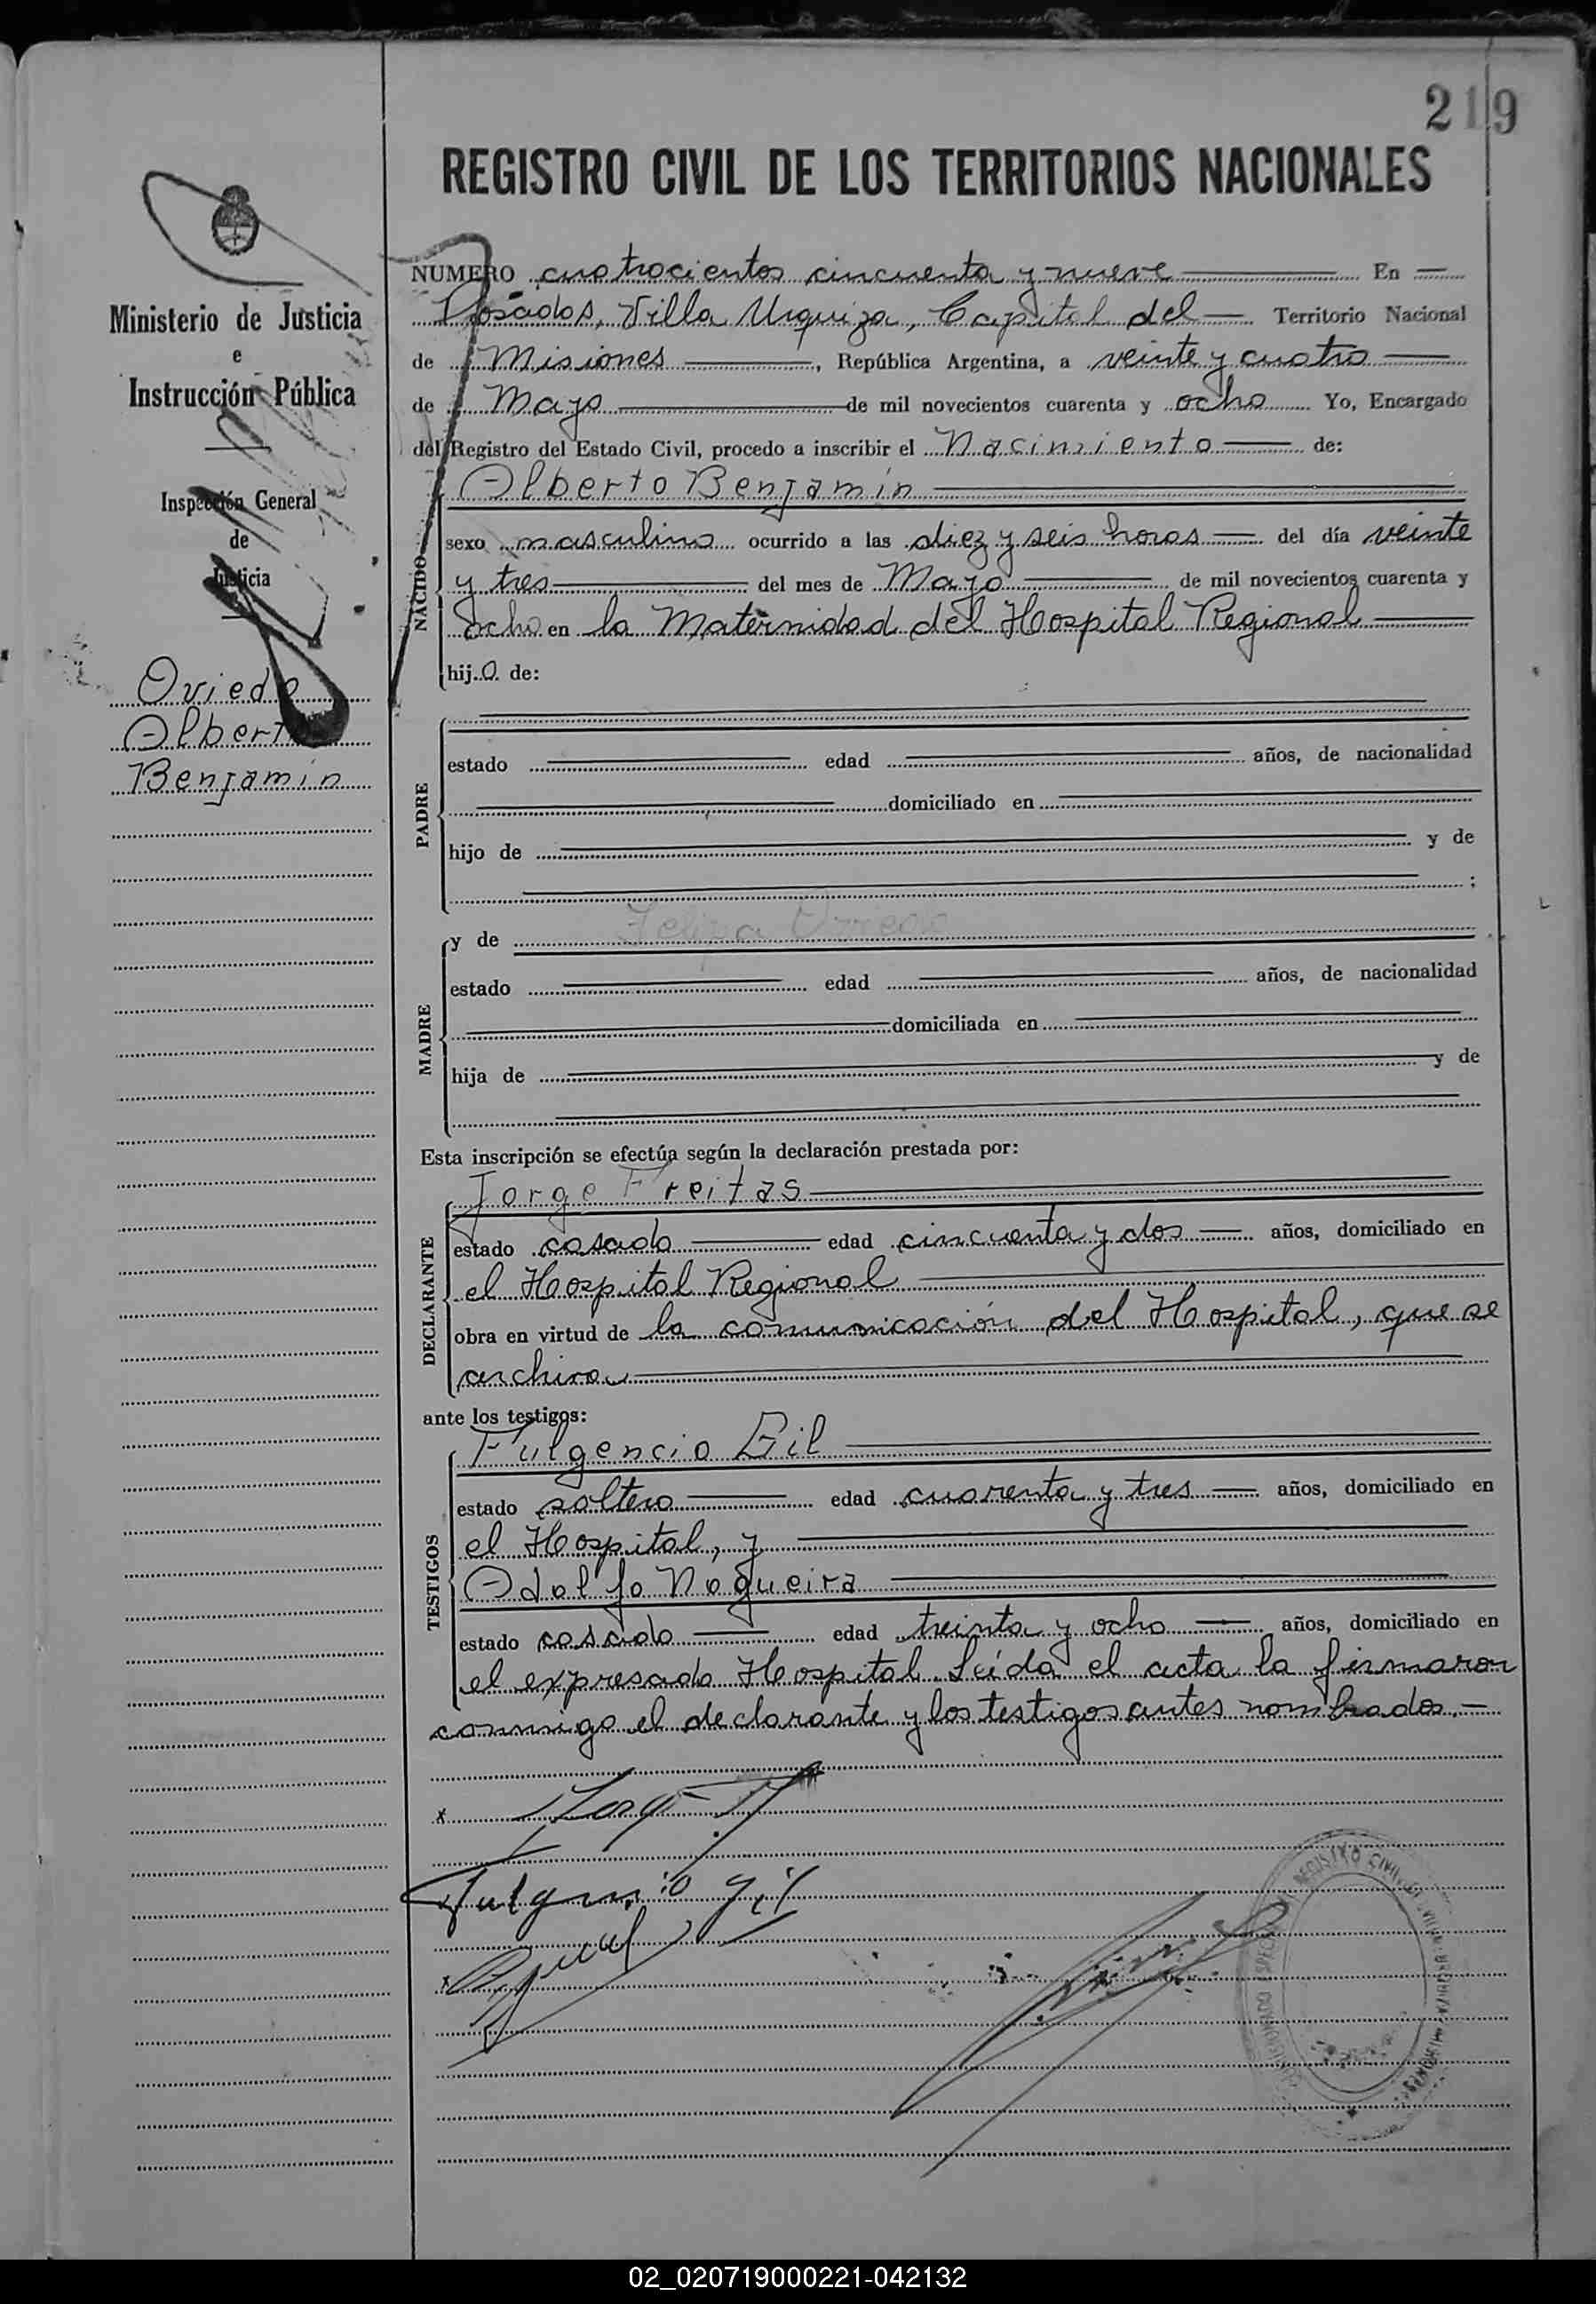 219
REGISTRO CIVIL DE LOS TERRITORIOS NACIONALES
Ministerio de Justicia
e
Instrucción Pública
Inspección General
de
Justicia
Oviedo
Alberto
Benjamín
NUMERO cuatrocientos cincuenta y nueve En
Posadas, Villa Urquiza, Capital del Territorio Nacional
de Misiones, República Argentina, a veinte y cuatro
de Mayo de mil novecientos cuarenta y ocho Yo, Encargado
del Registro del Estado Civil, procedo a inscribir el Nacimiento de:
NACIDO
Alberto Benjamín
sexo masculino ocurrido a las diez y seis horas del día veinte
y tres del mes de Mayo de mil novecientos cuarenta y
ocho en la Maternidad del Hospital Regional
hijo de:
PADRE
estado edad años, de nacionalidad
domiciliado en
hijo de y de
;
MADRE
y de Feliza
estado edad años, de nacionalidad
domiciliada en
hija de y de
Esta inscripción se efectúa según la declaración prestada por:
DECLARANTE
Jorge Freitas
estado casado edad cincuenta y dos años, domiciliado en
el Hospital Regional
obra en virtud de la comunicación del Hospital, que se
archiva
ante los testigos:
TESTIGOS
Fulgencio Gil
estado soltero edad cuarenta y tres años, domiciliado en
el Hospital, y
Adolfo Nogueira
estado casado edad treinta y ocho años, domiciliado en
el expresado Hospital. Leída el acta la firmaron
conmigo el declarante y los testigos antes nombrados.-
Fulgencio Gil
REGISTRO CIVIL
02_020719000221-042132